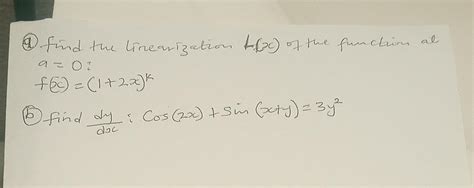 ⓐ find the linearization L(x) of the function at
a = 0:
f(x) = (1+2x)^k
ⓑ find dy/dx : Cos(2x) + Sin(x+y) = 3y²